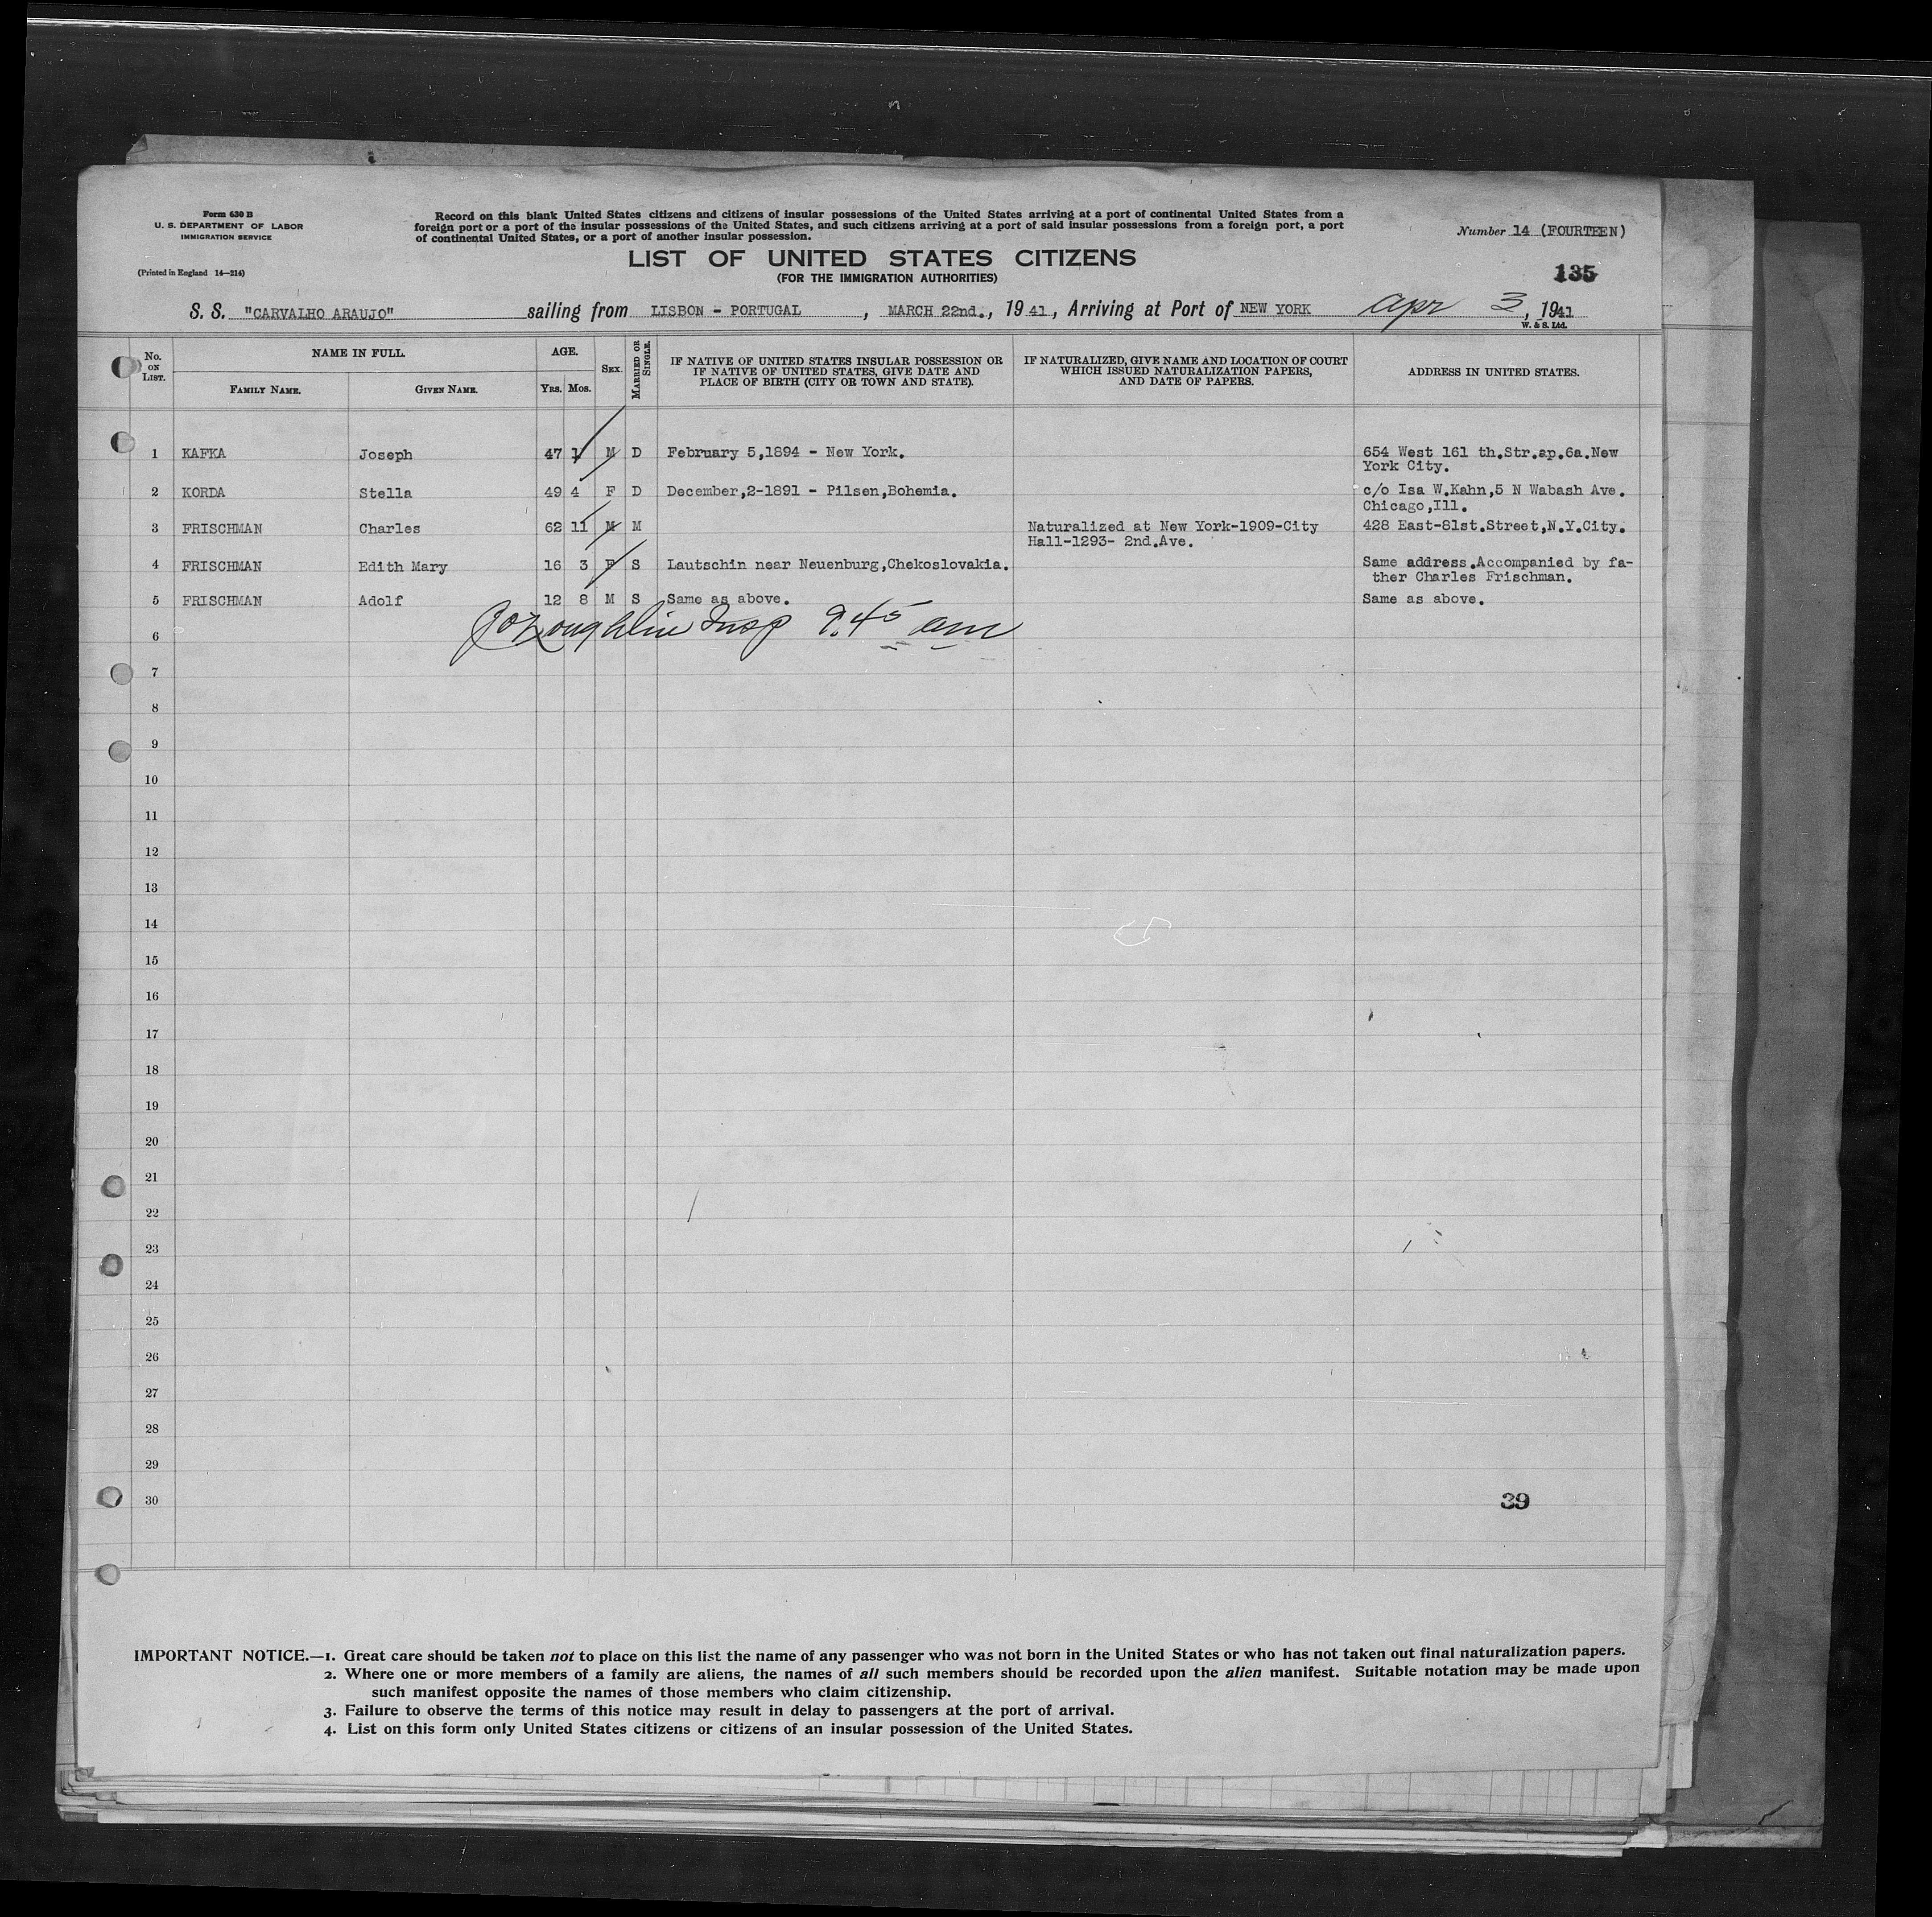 Form 630 B
U. S. DEPARTMENT OF LABOR
IMMIGRATION SERVICE
(Printed in England 14—214)
Record on this blank United States citizens and citizens of insular possessions of the United States arriving at a port of continental United States from a
foreign port or a port of the insular possessions of the United States, and such citizens arriving at a port of said insular possessions from a foreign port, a port
of continental United States, or a port of another insular possession.
Number 14 (FOURTEEN)
LIST OF UNITED STATES CITIZENS
(FOR THE IMMIGRATION AUTHORITIES)
135
S. S. "CARVALHO ARAUJO" sailing from LISBON - PORTUGAL, MARCH 22nd., 1941, Arriving at Port of NEW YORK Apr 3, 1941
W. & S. Ltd.
No. ON LIST.
NAME IN FULL.
FAMILY NAME.
GIVEN NAME.
AGE.
YRS. MOS.
SEX.
MARRIED OR SINGLE.
IF NATIVE OF UNITED STATES INSULAR POSSESSION OR
IF NATIVE OF UNITED STATES, GIVE DATE AND
PLACE OF BIRTH (CITY OR TOWN AND STATE).
IF NATURALIZED, GIVE NAME AND LOCATION OF COURT
WHICH ISSUED NATURALIZATION PAPERS,
AND DATE OF PAPERS.
ADDRESS IN UNITED STATES.
1 KAFKA Joseph 47 1 M D February 5,1894 - New York. 654 West 161 th.Str.ap.6a.New
York City.
2 KORDA Stella 49 4 F D December,2-1891 - Pilsen,Bohemia. c/o Isa W.Kahn,5 N Wabash Ave.
Chicago,Ill.
3 FRISCHMAN Charles 62 11 M M Naturalized at New York-1909-City 428 East-81st.Street,N.Y.City.
Hall-1293- 2nd.Ave.
4 FRISCHMAN Edith Mary 16 3 F S Lautschin near Neuenburg,Chekoslovakia. Same address.Accompanied by fa-
ther Charles Frischman.
5 FRISCHMAN Adolf 12 8 M S Same as above. Same as above.
O'Loughlin Insp 9.45 am
6
7
8
9
10
11
12
13
14
15
16
17
18
19
20
21
22
23
24
25
26
27
28
29
30
39
IMPORTANT NOTICE.—1. Great care should be taken not to place on this list the name of any passenger who was not born in the United States or who has not taken out final naturalization papers.
2. Where one or more members of a family are aliens, the names of all such members should be recorded upon the alien manifest. Suitable notation may be made upon
such manifest opposite the names of those members who claim citizenship.
3. Failure to observe the terms of this notice may result in delay to passengers at the port of arrival.
4. List on this form only United States citizens or citizens of an insular possession of the United States.